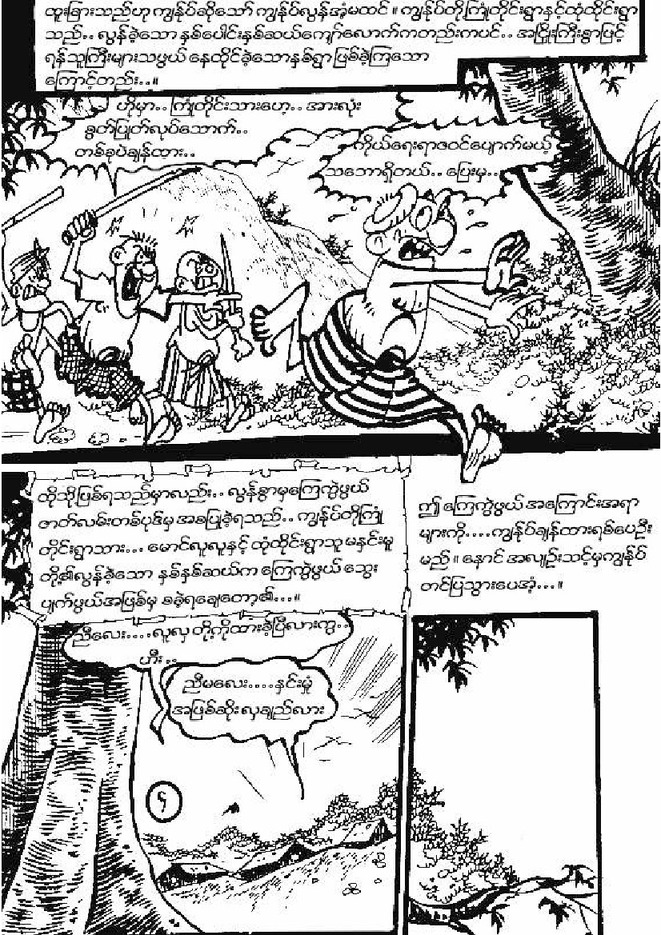 ထူးခြားသည်ဟု ကျွန်ုပ်ဆိုသော် ကျွန်ုပ်လွန်အံ့မထင်။ ကျွန်ုပ်တို့ကြုံတိုင်းရွာနှင့်ထုံထိုင်းရွာ
သည်.. လွန်ခဲ့သော နှစ်ပေါင်းနှစ်ဆယ်ကျော်လောက်ကတည်းကပင်.. အငြှိုးကြီးစွာဖြင့်
ရန်သူကြီးများသဖွယ် နေထိုင်ခဲ့သောနှစ်ရွာ ဖြစ်ခဲ့ကြသော
ကြောင့်တည်း..။
ဟိုမှာ.. ကြုံတိုင်းသားဟေ့.. အားလုံး
ခွတ်ပြုတ်လုပ်သောက်..
တစ်ခုပဲချန်ထား..
ကိုယ်ရေးရာဇဝင်ပျောက်မယ့်
သဘောရှိတယ်.. ပြေးမှ..
တိုသို့ဖြစ်ရသည်မှာလည်း.. လွန်စွာမှကြေကွဲဖွယ်
ဇာတ်လမ်းတစ်ပုဒ်မှ အစပြုခဲ့ရသည်.. ကျွန်ုပ်တို့ကြုံ
တိုင်းရွာသား... မောင်လူလှနှင့် ထုံထိုင်းရွာသူ မနှင်းမှုံ
တို့၏လွန်ခဲ့သော နှစ်နှစ်ဆယ်က ကြေကွဲဖွယ် သွေး
ပျက်ဖွယ်အဖြစ်မှ စခဲ့ရချေတော့၏...။
ဤ ကြေကွဲဖွယ် အကြောင်းအရာ
များကို....ကျွန်ုပ်ချန်ထားရစ်ပေဦး
မည်။ နောင် အလျဉ်းသင့်မှကျွန်ုပ်
တင်ပြသွားပေအံ့...။
ညီလေး....လူလှ တို့ကိုထားခဲ့ပြီလားကွ..
ဟီး..
ညီမလေး....နှင်းမှုံ
အဖြစ်ဆိုးလှချည်လား
၄